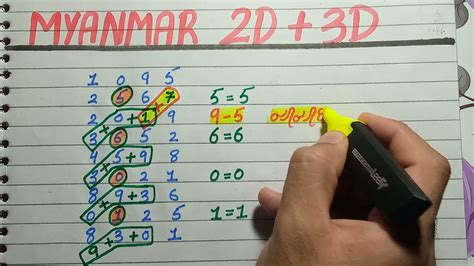 MYANMAR 2D + 3D
1 0 9 5
2 5 6 7 5 = 5
+
2 0 + 1 9 9 - 5
+
3 6 5 2 6 = 6
4 5 + 9 8
+
3 0 2 1 0 = 0
8 9 + 3 6
+
0 1 2 5 1 = 1
8 3 + 0 1
+
9